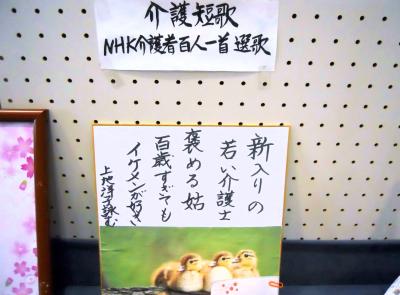 介護短歌
NHK介護者百人一首 選歌
新入りの
若い介護士
褒める姑
百歳すぎても
イケメンが好き
上地洋子詠む